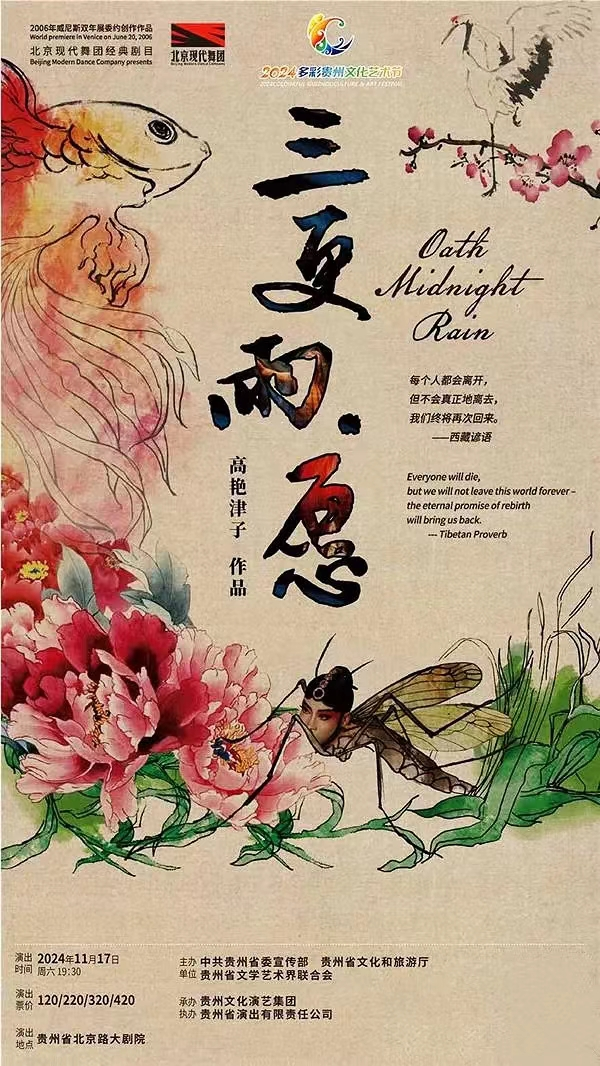 2006年威尼斯双年展委约创作作品
World premiere in Venice on June 20, 2006
北京现代舞团经典剧目
Beijing Modern Dance Company presents
北京现代舞团
Beijing Modern Dance Company
2024多彩贵州文化艺术节
三更雨·愿
Oath
Midnight
Rain
高艳津子 作品
每个人都会离开，
但不会真正地离去，
我们终将再次回来。
——西藏谚语
Everyone will die,
but we will not leave this world forever –
the eternal promise of rebirth
will bring us back.
--- Tibetan Proverb
演出时间 2024年11月17日
周六 19:30
演出票价 120/220/320/420
演出地点 贵州省北京路大剧院
主办单位 中共贵州省委宣传部 贵州省文化和旅游厅
贵州省文学艺术界联合会
承办 贵州文化演艺集团
执办 贵州省演出有限责任公司